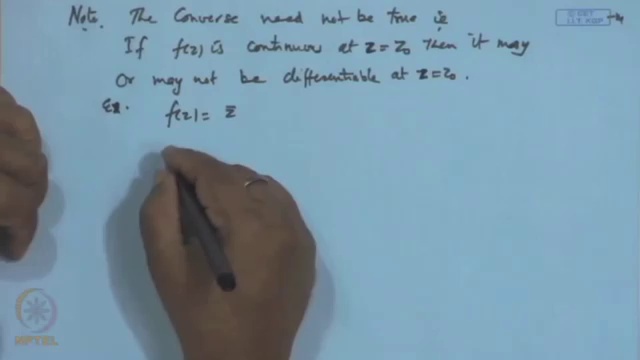 Note. The Converse need not be true ie
If f(z) is continuous at z=z₀ then it may
Or may not be differentiable at z=z₀.
Ex. f(z) = z̄
© CET
I.I.T. KGP
NPTEL